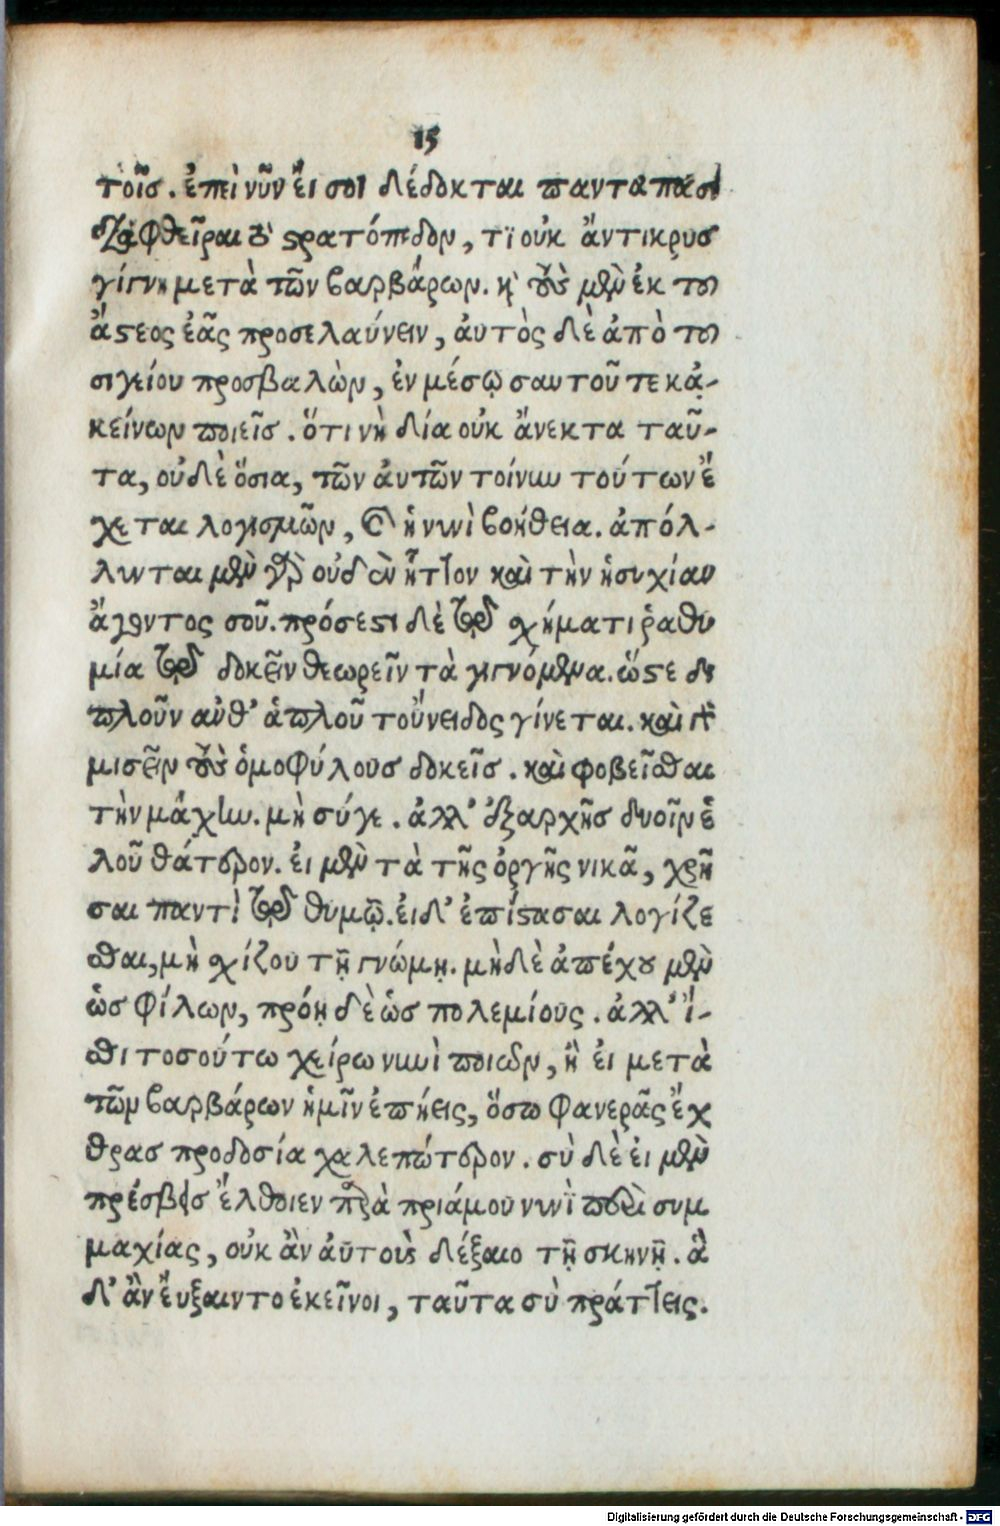 15
τοῖς. ἐπεὶ νῦν εἴ σοι δέδοκται πανταπάσι
διαφθεῖραι τὸ στρατόπεδον, τὶ οὐκ ἄντικρυσ
γίγνη μετὰ τῶν βαρβάρων. ἢ τοὺς μὲν ἐκ του
ἄστεος ἐᾶς προσελαύνειν, ἀυτὸς δὲ ἀπὸ του
σιγείου προσβαλὼν, ἐν μέσῳ σαυτοῦ τε κᾀ-
κείνων ποιεῖς. ὅτι νὴ δία οὐκ ἄνεκτα ταῦ-
τα, οὐδὲ ὅσια, τῶν ἀυτῶν τοίνυν τούτων ἔ
χεται λογισμῶν, καὶ ἡ νυνὶ βοήθεια. ἀπόλ-
λυνται μὲν γὰρ οὐδὲν ἧττον καὶ τὴν ἡσυχίαν
ἄγοντος σοῦ. πρόσεστι δὲ τῷ σχήματι ῥαθυ
μία τῷ δοκεῖν θεωρεῖν τὰ γιγνόμενα. ὥστε δι
πλοῦν ἀνθ' ἁπλοῦ τοὔνειδος γίνεται. καὶ γὰρ
μισεῖν τοὺς ὁμοφύλους δοκεῖς. καὶ φοβεῖσθαι
τὴν μάχην. μὴ σύγε. ἀλλ' ἐξαρχῆς δυοῖν ἑ
λοῦ θάτερον. ἐι μὲν τὰ τῆς ὀργῆς νικᾶ, χρῆ
σαι παντὶ τῷ θυμῷ. ἐι δ' ἐπίστασαι λογίζε
σθαι, μὴ σχίζου τῇ γνώμῃ. μὴδὲ ἀπέχου μὲν
ὡς φίλων, πρόῃ δὲ ὡς πολεμίους. ἀλλ' ἴ-
σθι τοσούτω χείρω νυνὶ ποιῶν, ἢ ἐι μετὰ
τῶν βαρβάρων ἡμῖν ἐπῄεις, ὅσῳ φανερᾶς ἔχ
θρας προδοσία χαλεπώτερον. σὺ δὲ ἐι μὲν
πρέσβεις ἔλθοιεν παρὰ πριάμου νυνὶ περὶ συμ
μαχίας, οὐκ ἂν ἀυτοὺς δέξαιο τῇ σκηνῇ. ἃ
δ' ἂν ἔυξαιντο ἐκεῖνοι, ταῦτα σὺ πράττεις.
Digitalisierung gefördert durch die Deutsche Forschungsgemeinschaft - DFG